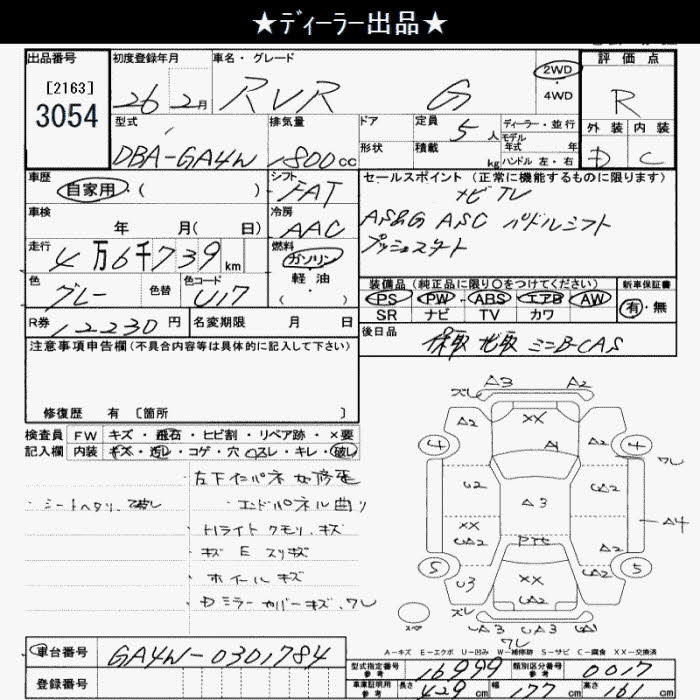 ★ディーラー出品★
出品番号 初度登録年月 車名・グレード 2WD ・ 4WD 評価点
[2163]
3054
26年2月 RVR G R
型式 排気量 ドア 定員 5人 ディーラー・並行 外装 内装
モデル年式 年
DBA-GA4W 1800cc 形状 積載 kg ハンドル 左・右 D C
車歴 シフト セールスポイント(正常に機能するものに限ります)
自家用・( ) FAT ナビ TV
車検 冷房 AS&G ASC パドルシフト
年 月( 日) AAC プッシュスタート
走行 燃料
4万6千739km ガソリン
軽油
・( )
装備品(純正品に限り○をつけてください) 新車保証書
色 色替 色コード
グレー U17
PS PW ABS エアB AW 有・無
SR ナビ TV カワ
R券 12230円 名変期限 月 日 後日品 保取 ゼ取 ミニB-CAS
注意事項申告欄(不具合内容等は具体的に記入して下さい)
修復歴 有 [箇所 ]
検査員 FW キズ・飛石・ヒビ割・リペア跡・×要
記入欄 内装 キズ・汚レ・コゲ・穴・スレ・キレ・破レ
左下インパネ 修正
シートヘタリ 破レ エンドパネル曲リ
Hライト クモリ、キズ
キズ E スリキズ
ホイールキズ
Dミラーカバーキズ、ワレ
ズレ A3 A2
A2 XX A2
4 A1 4
ワレ
U2 A3 UA2
XX A4
UA2 A2
5 5
U3 XX UA2
UA2
ズレ
スペア UA3 UA3 A1
ワレ
A-キズ E-エクボ U-凹み W-補修跡 S-サビ C-腐食 XX-交換済
車台番号 GA4W-0301784
型式指定番号 参考 16999 類別区分番号 参考 0017
登録番号
車庫証明用 参考 長さ 429cm 幅 177cm 高さ 161cm